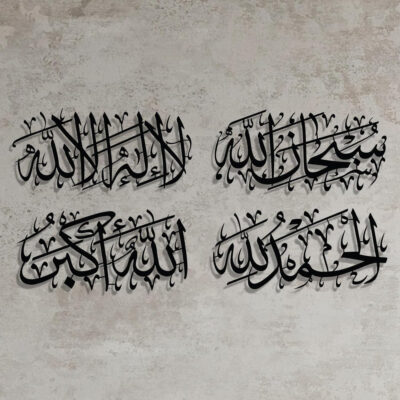 سُبْحَانَ اللَّه
لا إله إلا الله
الْحَمْدُ لِلَّه
اللهُ أَكْبَرُ